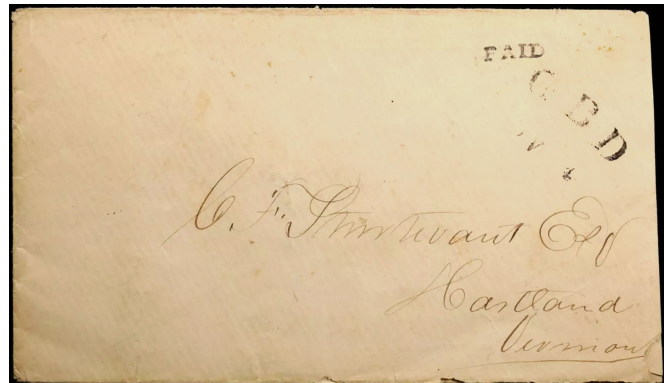 PAID
C. F. Sturtevant Esq
Hartland
Vermont